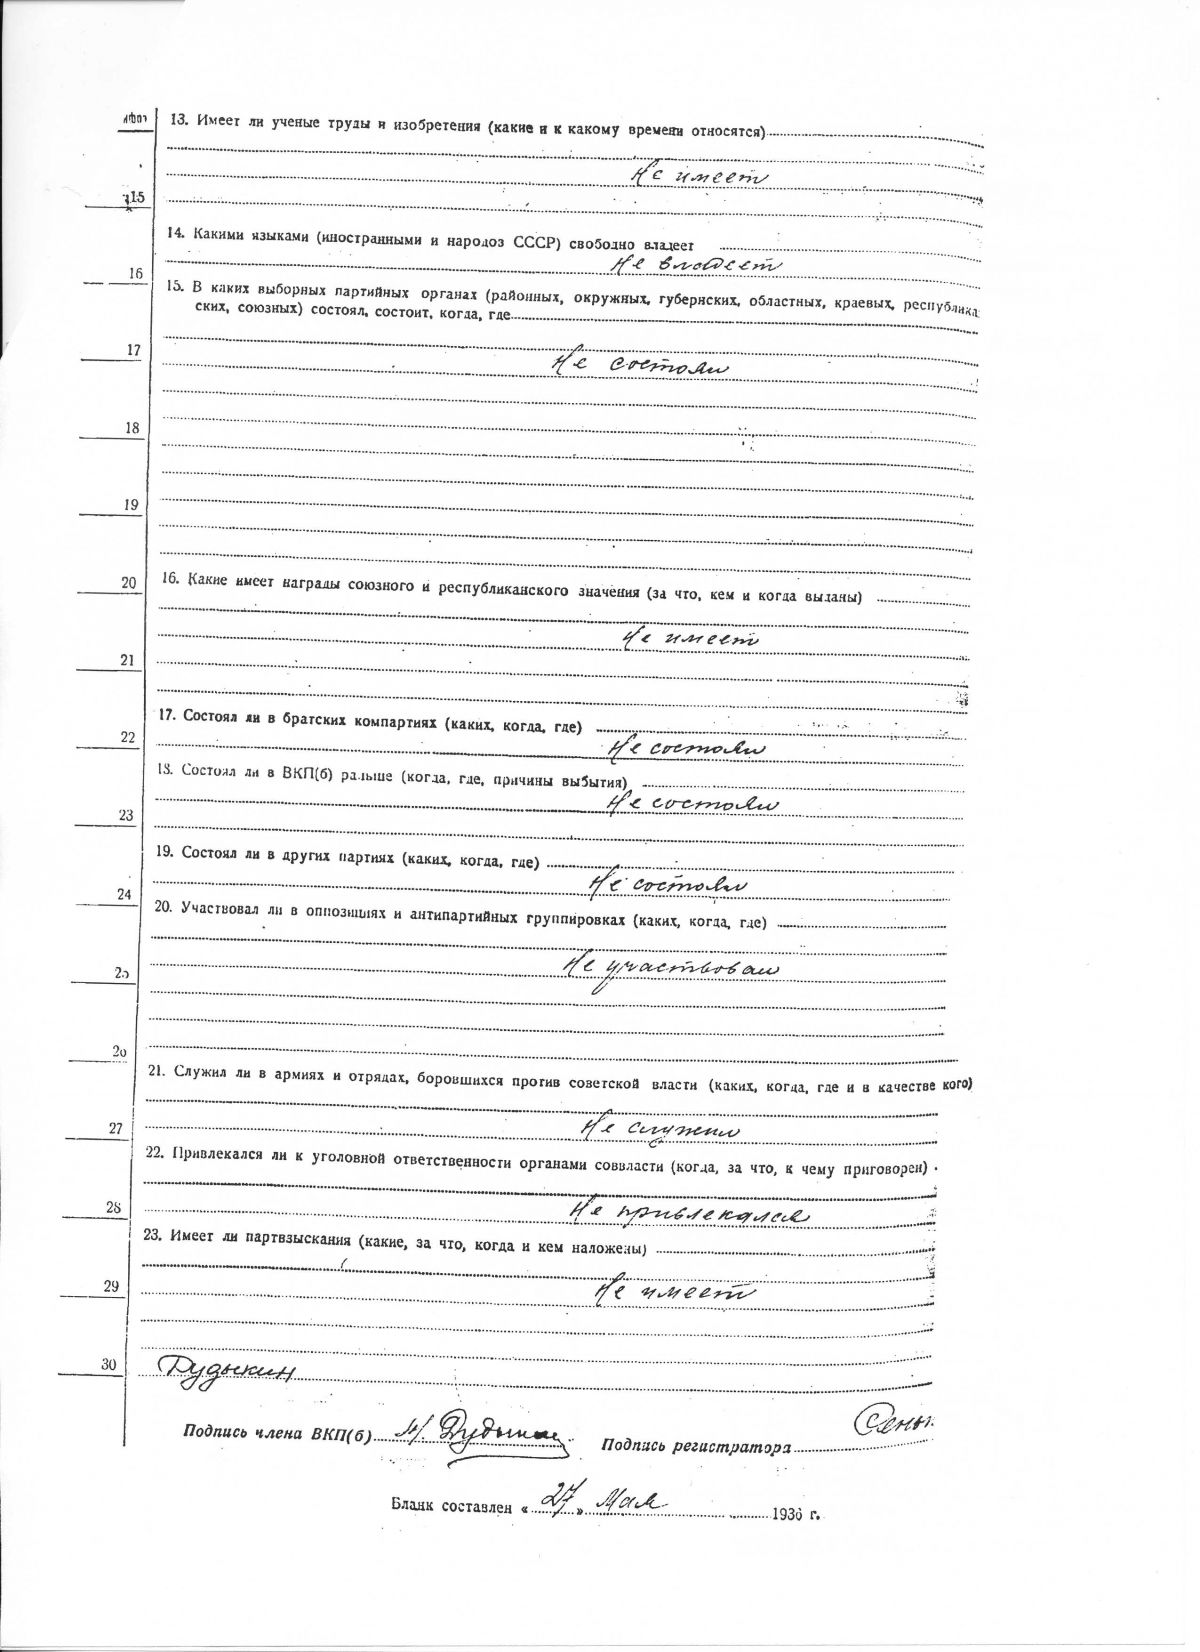 13. Имеет ли ученые труды и изобретения (какие и к какому времени относятся)
Не имеет
15
14. Какими языками (иностранными и народов СССР) свободно владеет
Не владеет
16
15. В каких выборных партийных органах (районных, окружных, губернских, областных, краевых, республикан
ских, союзных) состоял, состоит, когда, где
17
Не состоял
18
19
20
16. Какие имеет награды союзного и республиканского значения (за что, кем и когда выданы)
Не имеет
21
17. Состоял ли в братских компартиях (каких, когда, где)
22
Не состоял
18. Состоял ли в ВКП(б) раньше (когда, где, причины выбытия)
Не состоял
23
19. Состоял ли в других партиях (каких, когда, где)
Не состоял
24
20. Участвовал ли в оппозициях и антипартийных группировках (каких, когда, где)
Не участвовал
25
26
21. Служил ли в армиях и отрядах, боровшихся против советской власти (каких, когда, где и в качестве кого)
27
Не служил
22. Привлекался ли к уголовной ответственности органами соввласти (когда, за что, к чему приговорен)
28
Не привлекался
23. Имеет ли партвзыскания (какие, за что, когда и кем наложены)
29
Не имеет
30
Дудыкин
Подпись члена ВКП(б) Дудыкин Подпись регистратора
Бланк составлен «27» Мая 1936 г.